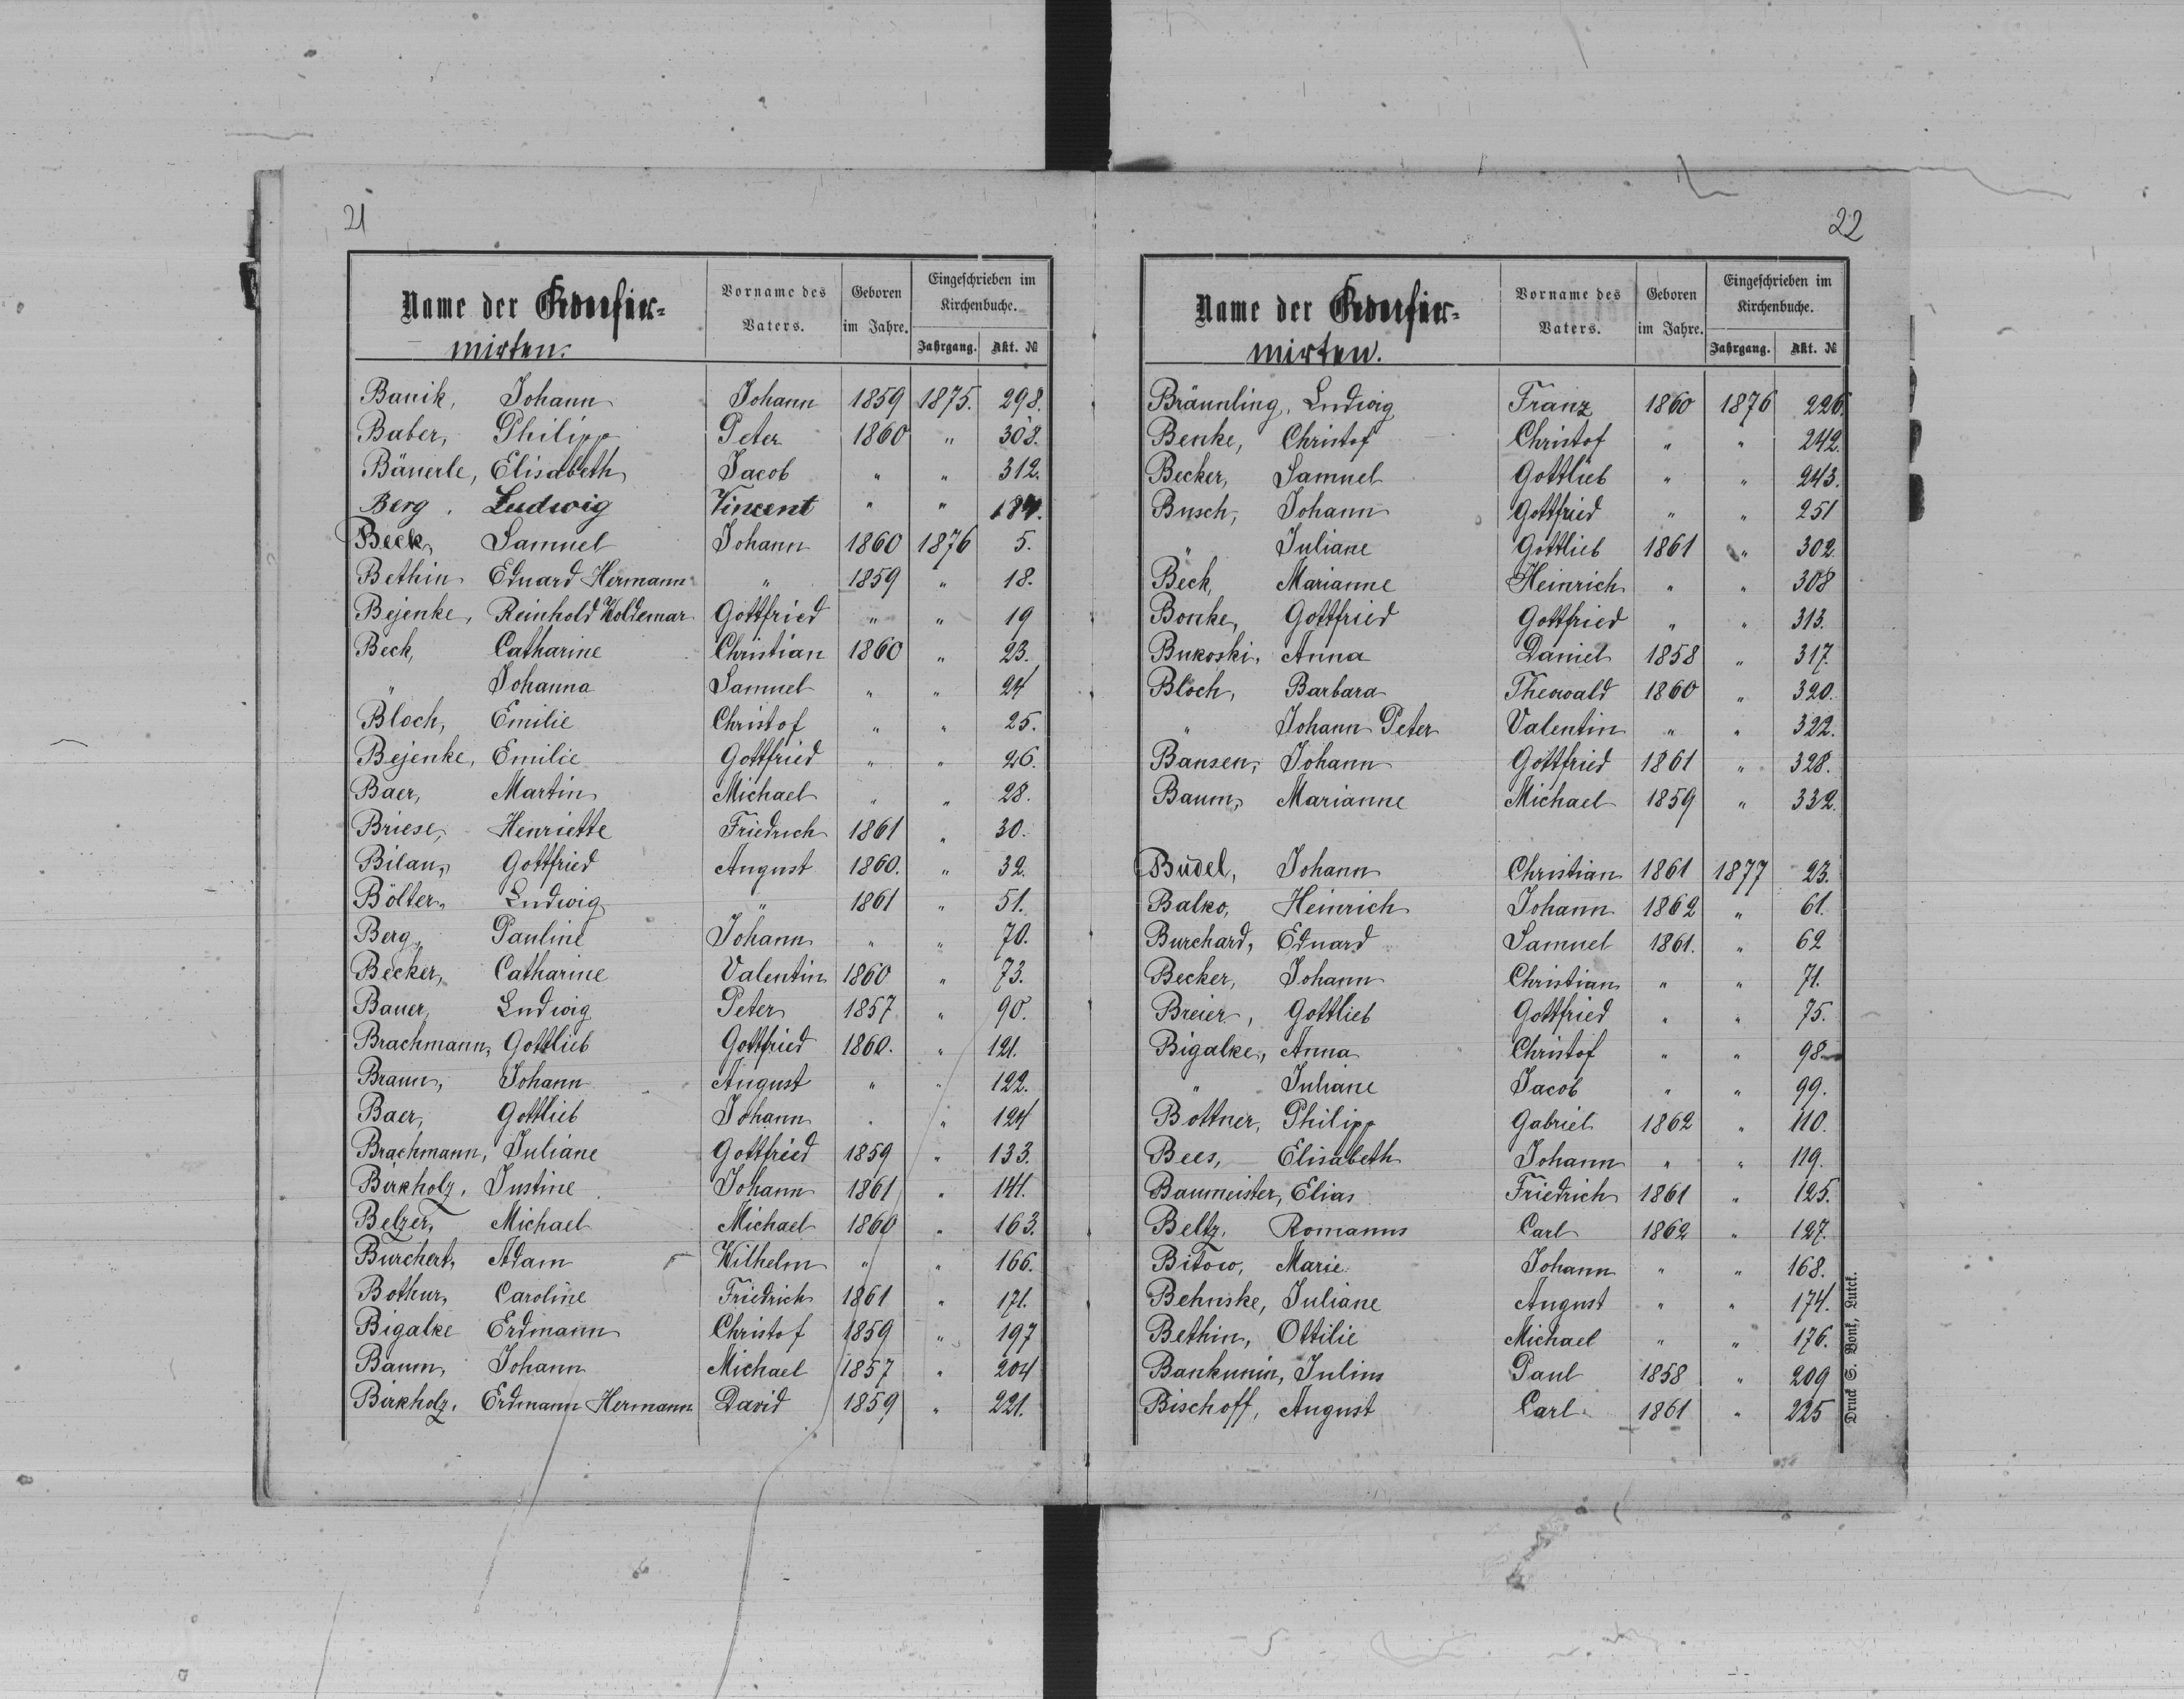 21
Name der Konfir-
mirten.
Vorname des Vaters.
Geboren im Jahre.
Eingeschrieben im Kirchenbuche.
Jahrgang. Akt. №
Banik, Johann Johann 1859 1875. 298.
Baber, Philipp Peter 1860 " 308.
Bäuerle, Elisabeth Jacob " " 312.
Berg, Ludwig Vincent " " 184.
Beck, Samuel Johann 1860 1876 5.
Bethin Eduard Hermann " 1859 " 18.
Bejenke, Reinhold Woldemar Gottfried " " 19
Beck, Catharine Christian 1860 " 23.
" Johanna Samuel " " 24
Bloch, Emilie Christof " " 25.
Bejenke, Emilie Gottfried " " 26.
Baer, Martin Michael " " 28.
Briese, Henriette Friedrich 1861 " 30.
Bilau, Gottfried August 1860. " 32.
Bölter, Ludwig " 1861 " 51.
Berg, Pauline Johann " " 70.
Becker, Catharine Valentin 1860 " 73.
Bauer, Ludwig Peter 1857 " 90.
Brachmann, Gottlieb Gottfried 1860. " 121.
Braun, Johann August " " 122.
Baer, Gottlieb Johann " " 124
Brachmann, Juliane Gottfried 1859 " 133.
Birkholz, Justine Johann 1861 " 141.
Belzer, Michael Michael 1860 " 163.
Burchert, Adam Wilhelm " " 166.
Bothur, Caroline Friedrich 1861 " 171.
Bigalke Erdmann Christof 1859 " 197
Baum, Johann Michael 1857 " 204
Birkholz, Erdmann Hermann David 1859 " 221.
22
Name der Konfir-
mirten.
Vorname des Vaters.
Geboren im Jahre.
Eingeschrieben im Kirchenbuche.
Jahrgang. Akt. №
Bräunling, Ludwig Franz 1860 1876 226.
Benke, Christof Christof " " 242.
Becker, Samuel Gottlieb " " 243.
Busch, Johann Gottfried " " 251
" Juliane Gottlieb 1861 " 302.
Beck, Marianne Heinrich " " 308
Bonke, Gottfried Gottfried " " 313.
Bukoski, Anna Daniel 1858 " 317.
Bloch, Barbara Thewald 1860 " 320.
" Johann Peter Valentin " " 322.
Bansen, Johann Gottfried 1861 " 328.
Baum, Marianne Michael 1859 " 332.
Budel, Johann Christian 1861 1877 23.
Balko, Heinrich Johann 1862 " 61.
Burchard, Eduard Samuel 1861. " 62
Becker, Johann Christian " " 71.
Breier, Gottlieb Gottfried " " 75.
Bigalke, Anna Christof " " 98
" Juliane Jacob " " 99.
Bottner, Philipp Gabriel 1862 " 110.
Bees, Elisabeth Johann " " 119.
Baumeister, Elias Friedrich 1861 " 125.
Beltz, Romanus Carl 1862 " 127.
Bitow, Marie Johann " " 168.
Behnske, Juliane August " " 174.
Bethin, Ottilie Michael " " 176.
Bankunin, Julius Paul 1858 " 209
Bischoff, August Carl 1861 " 225
Druck S. Bonk, Luck.